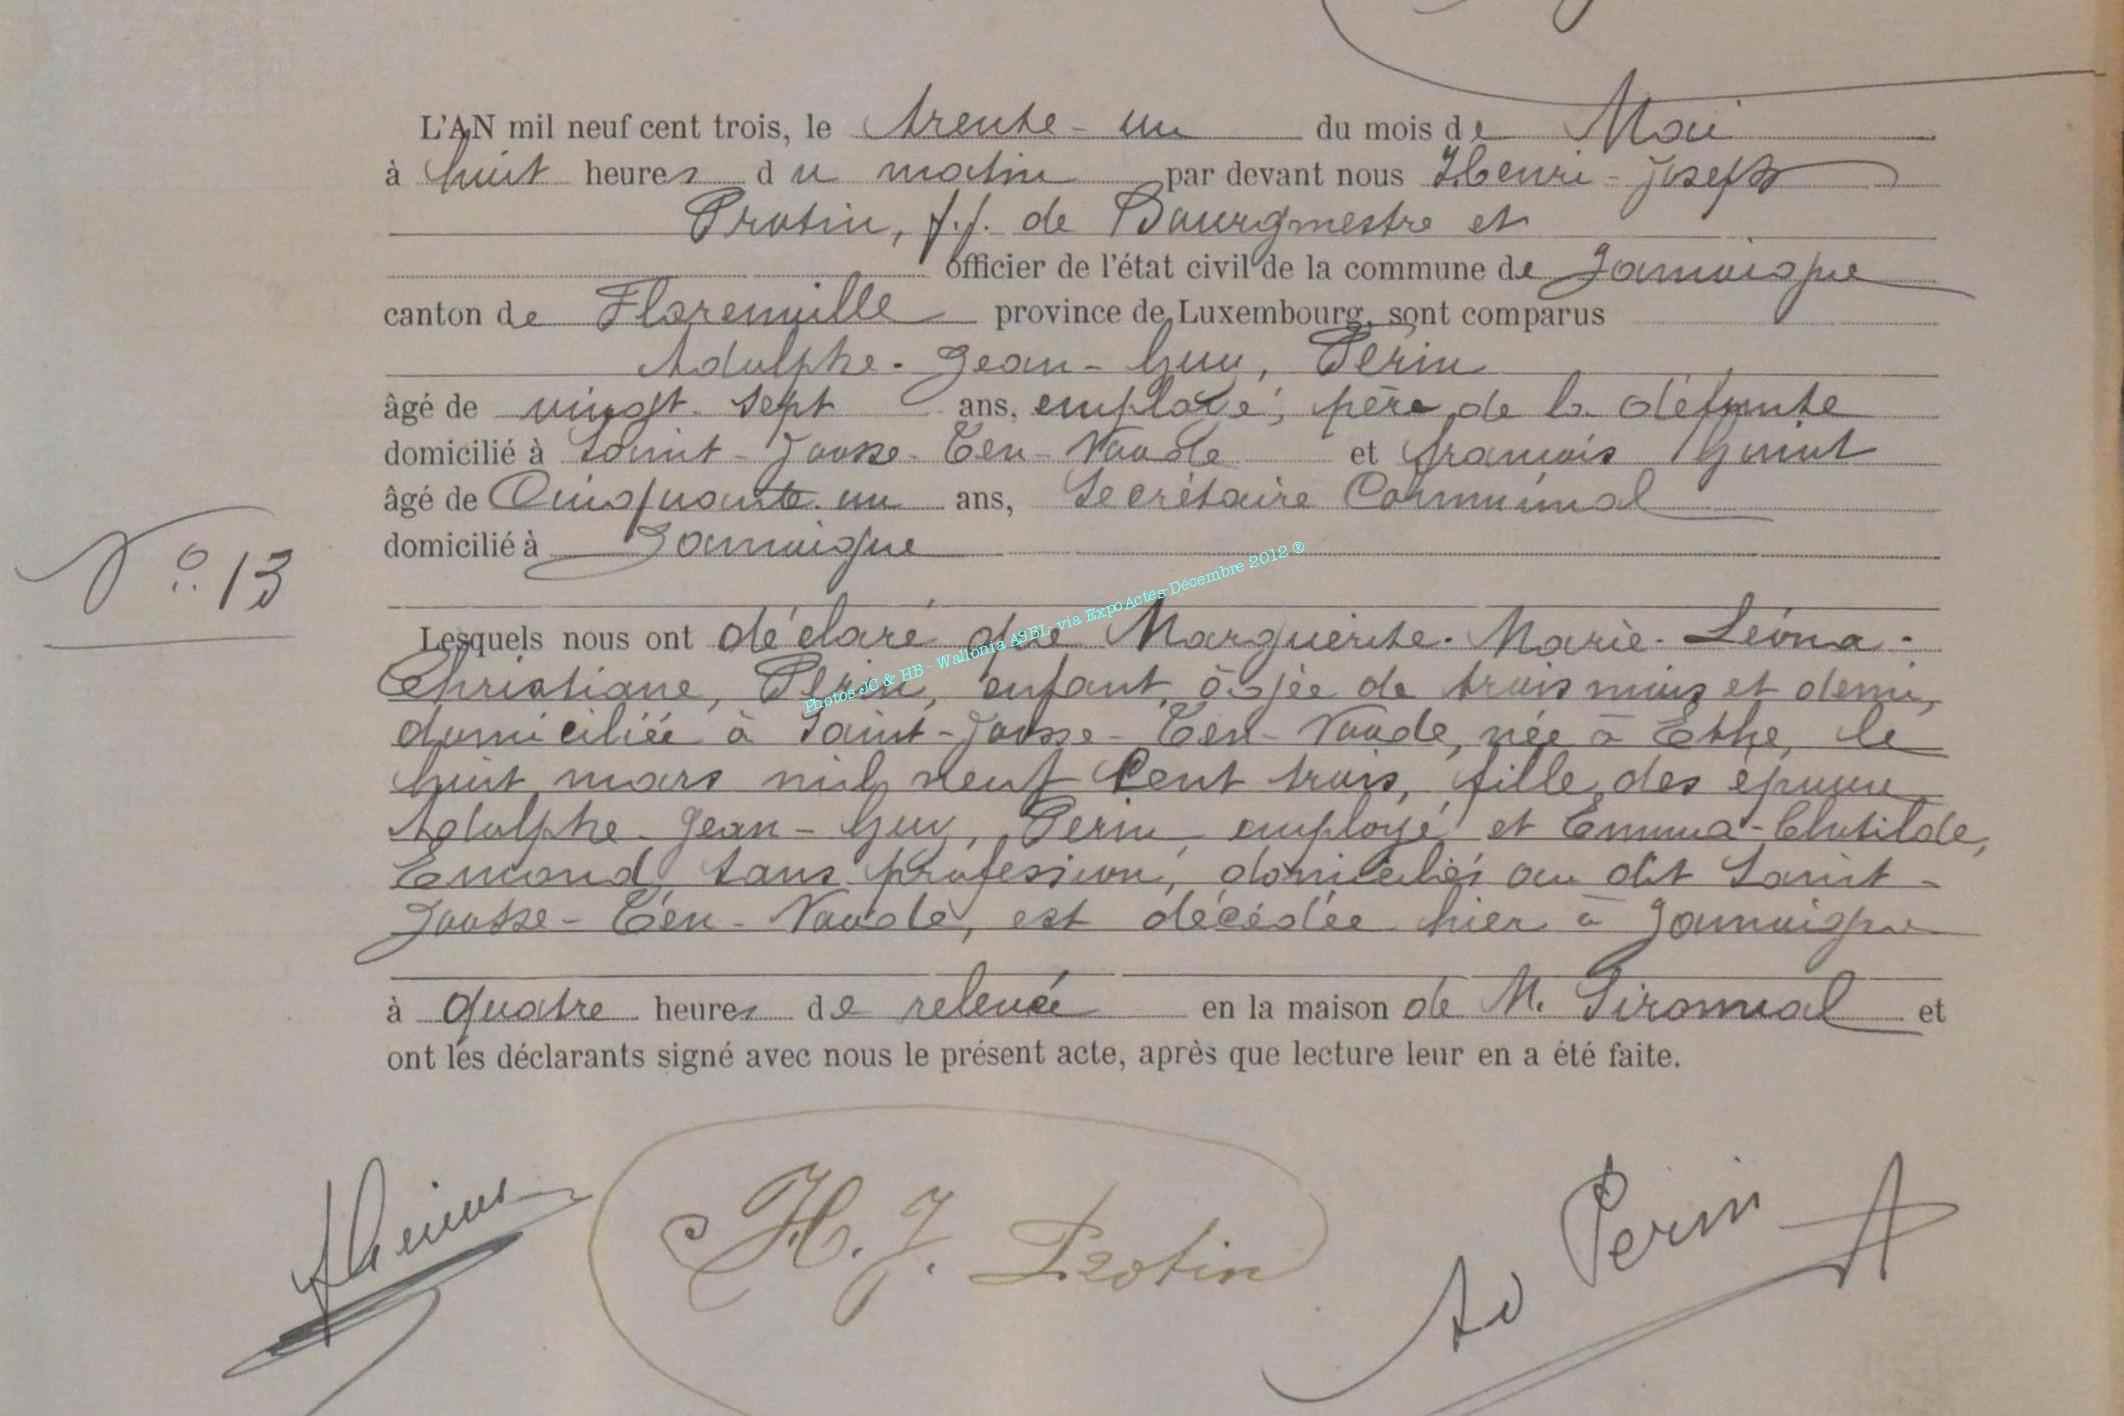 L'AN mil neuf cent trois, le trente-un du mois de Mai
à huit heures du matin par devant nous Henri-Joseph
Protin, f.f. de Bourgmestre et
officier de l'état civil de la commune de Jamoigne
canton de Florenville province de Luxembourg, sont comparus
Adolphe-Jean-Guy, Perin
âgé de vingt-sept ans, employé, père de la défunte
domicilié à Saint-Josse-Ten-Noode et François
âgé de Cinquante-un ans, Secrétaire Communal
domicilié à Jamoigne
N° 13
Lesquels nous ont déclaré que Marguerite-Marie-Léona-
Christiane, Perin, enfant, âgée de trois mois et demi,
domiciliée à Saint-Josse-Ten-Noode, née à Ethe, le
huit mars mil neuf cent trois, fille des époux
Adolphe-Jean-Guy, Perin, employé et Emma-Clotilde,
Emond sans profession, domiciliés au dit Saint-
Josse-Ten-Noode, est décédée hier à Jamoigne
à quatre heures de relevée en la maison de M. et
ont les déclarants signé avec nous le présent acte, après que lecture leur en a été faite.
H. J. Protin
Ad Perin
Photos JC & HB - Wallonia ASBL via ExpoActes-Décembre 2012 ®